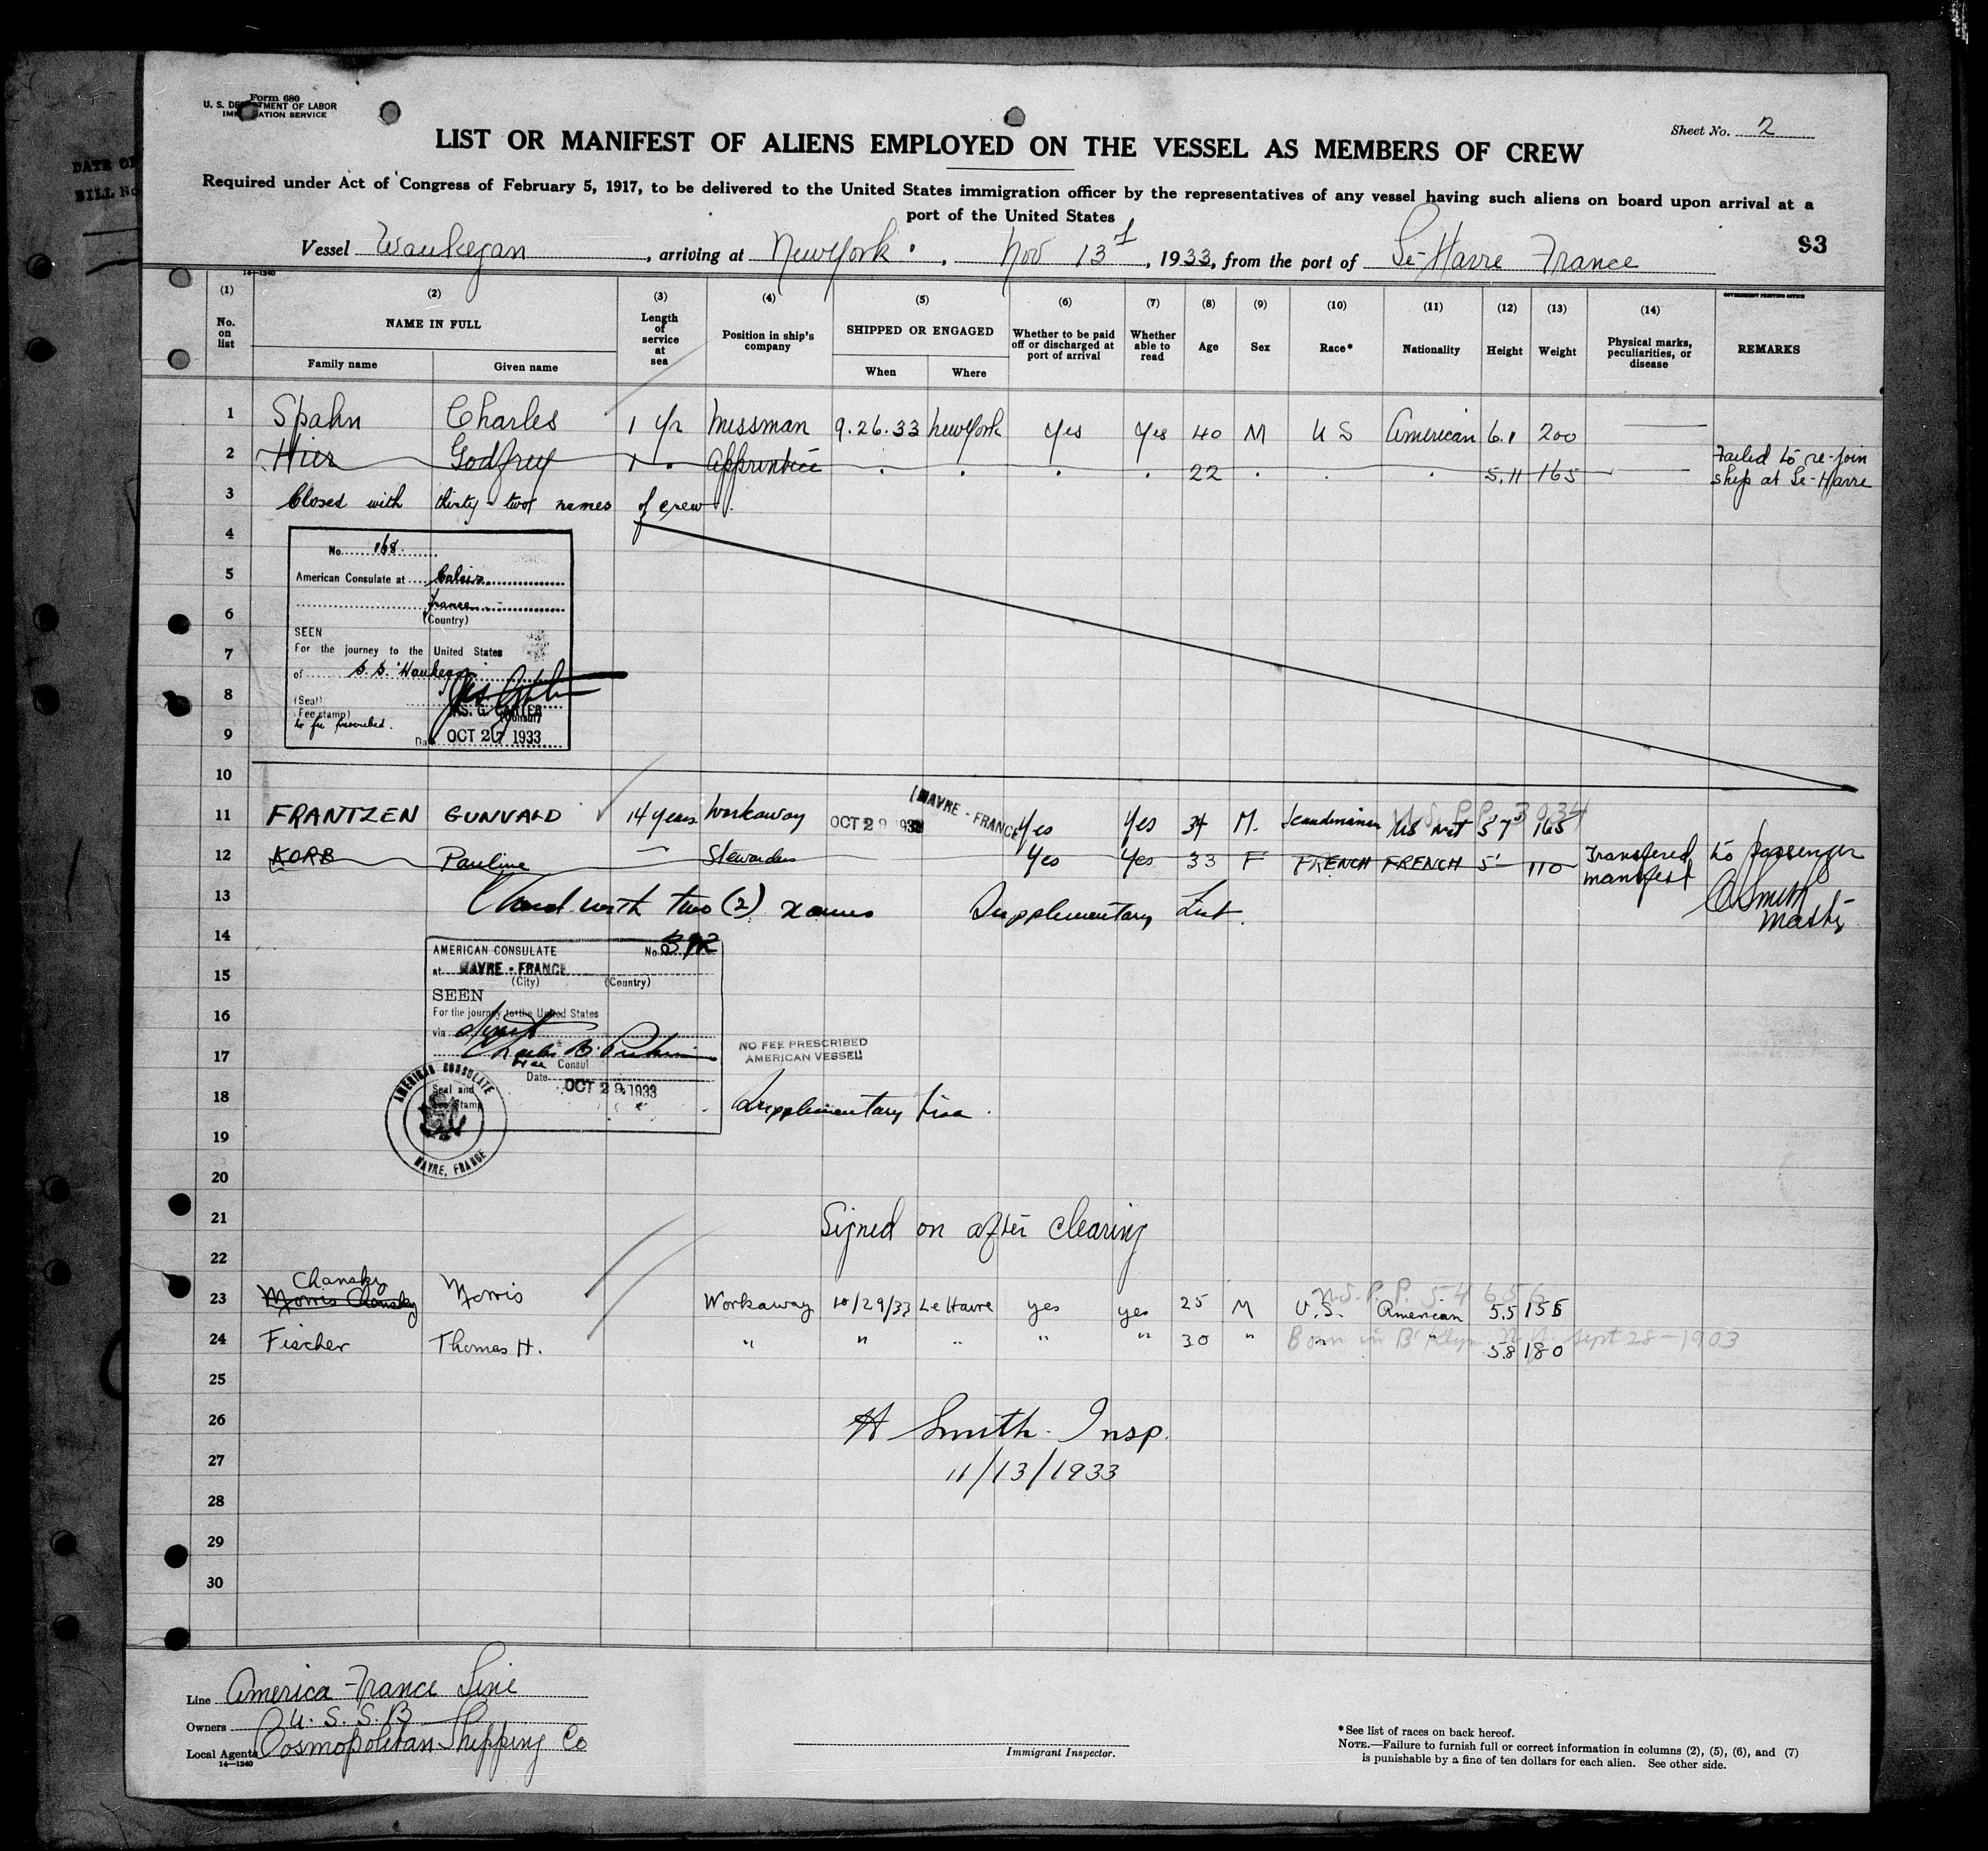 Form 680
U. S. DEPARTMENT OF LABOR
IMMIGRATION SERVICE
Sheet No. 2
LIST OR MANIFEST OF ALIENS EMPLOYED ON THE VESSEL AS MEMBERS OF CREW
Required under Act of Congress of February 5, 1917, to be delivered to the United States immigration officer by the representatives of any vessel having such aliens on board upon arrival at a
port of the United States
Vessel Waukegan, arriving at New York, Nov 13, 1933, from the port of Le-Havre France
S3
14—1240
(1) (2) (3) (4) (5) (6) (7) (8) (9) (10) (11) (12) (13) (14) GOVERNMENT PRINTING OFFICE
No. on list NAME IN FULL Length of service at sea Position in ship's company SHIPPED OR ENGAGED Whether to be paid off or discharged at port of arrival Whether able to read Age Sex Race* Nationality Height Weight Physical marks, peculiarities, or disease REMARKS
Family name Given name When Where
1 Spahn Charles 1 yr Messman 9.26.33 New York Yes Yes 40 M U S American 6.1 200
2 Hier Godfrey 1 " Apprentice 22 5.11 165 Failed to re-join
ship at Le-Havre
3 Closed with thirty-two names of crew
4
No. 168
5
American Consulate at Calais
France
(Country)
6
SEEN
7
For the journey to the United States
of S.S. Waukegan
8
(Seal)
(Fee stamp)
No fee prescribed.
JAS. G. CARTER
(Consul)
9
Date OCT 27 1933
10
11 FRANTZEN GUNVALD 14 years Workaway OCT 29 1933 HAVRE - FRANCE Yes Yes 34 M. Scandinavian US Nat 5'7" 165
12 KORB Pauline — Stewardess Yes Yes 33 F FRENCH FRENCH 5' 110 Transfered to passenger
manifest
C Smith
Master
13 Closed with two (2) names Supplementary List.
14
AMERICAN CONSULATE No. 392
15
at HAVRE - FRANCE
(City) (Country)
SEEN
16
For the journey to the United States
via direct
17
Vice Consul
NO FEE PRESCRIBED
AMERICAN VESSEL
Date OCT 29 1933
18
Seal and
Fee Stamp
AMERICAN CONSULATE
HAVRE, FRANCE
Supplementary Visa
19
20
21 Signed on after clearing
22
U.S.P.P. 54656
Chansky
23 Morris Chansky Morris Workaway 10/29/33 Le Havre yes yes 25 M U.S. American 5.5 155
24 Fischer Thomas H. " " " " " 30 " " 5.8 180
Born in B'klyn N.Y. Sept 28-1903
25
26 H Smith Insp.
27 11/13/1933
28
29
30
Line America-France Line
Owners U. S. S. B
Local Agents Cosmopolitan Shipping Co
14—1240
Immigrant Inspector.
*See list of races on back hereof.
NOTE.—Failure to furnish full or correct information in columns (2), (5), (6), and (7)
is punishable by a fine of ten dollars for each alien. See other side.
DATE OF
BILL No